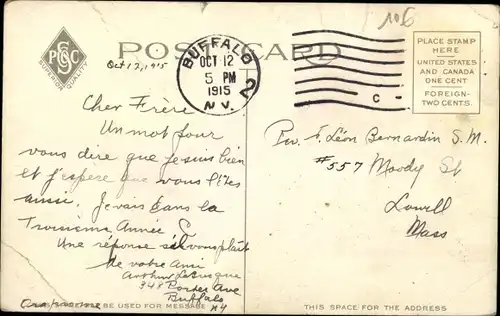 106
P.S.&C.
SUPERIOR QUALITY
POST CARD
Oct 12, 1915
BUFFALO
OCT 12
5 PM
1915
N.Y.
2
C
PLACE STAMP
HERE
UNITED STATES
AND CANADA
ONE CENT
FOREIGN-
TWO CENTS.
Cher Frère
Un mot pour
vous dire que je suis bien
et j'espère que vous l'êtes
aussi. Je vais dans la
Troisième Année C
Une réponse s'il vous plait
de votre Ami
Arthur
348 Porter Ave
Buffalo
N Y
BE USED FOR MESSAGE
Rev. F. Léon Bernardin S.M.
#557 Moody St
Lowell
Mass
THIS SPACE FOR THE ADDRESS